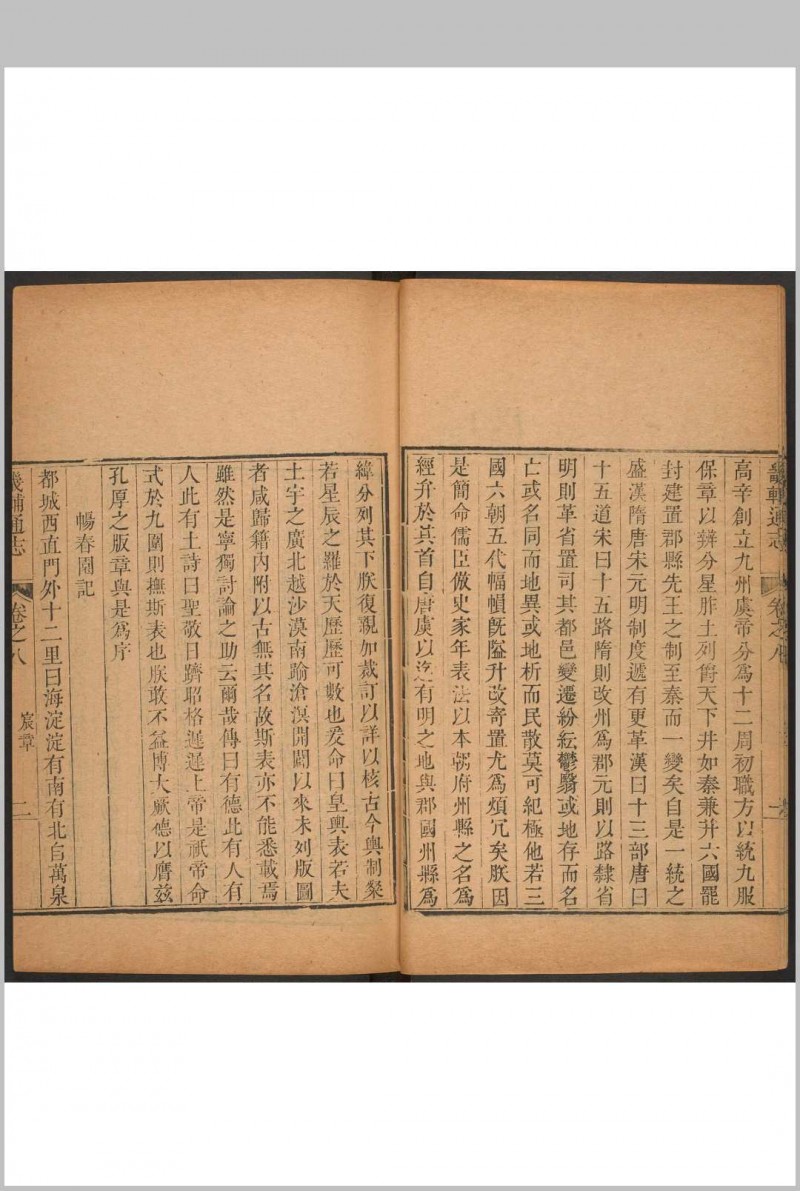 畿輔通志
卷之八
高辛創立九州虞帝分爲十二周初職方以統九服
保章以辨分星胙土列爵天下井如秦兼并六國罷
封建置郡縣先王之制至秦而一變矣自是一統之
盛漢隋唐宋元明制度遞有更革漢曰十三部唐曰
十五道宋曰十五路隋則改州爲郡元則以路隸省
明則革省置司其都邑變遷紛紜鬱翳或地存而名
亡或名同而地異或地析而民散莫可紀極他若三
國六朝五代幅幀旣隘升改寄置尤爲煩冗矣朕因
是簡命儒臣倣史家年表法以本朝府州縣之名爲
經弁於其首自唐虞以迄有明之地與郡國州縣爲
緯分列其下朕復親加裁訂以詳以核古今輿制燦
若星辰之羅於天歷歷可數也爰命曰皇輿表若夫
土宇之廣北越沙漠南踰滄溟開闢以來未列版圖
者咸歸籍內附以古無其名故斯表亦不能悉載焉
雖然是寧獨討論之助云爾哉傳曰有德此有人有
人此有土詩曰聖敬日躋昭格遲遲上帝是祇帝命
式於九圍則撫斯表也朕敢不益博大厥德以膺茲
孔厚之版章與是爲序
暢春園記
都城西直門外十二里曰海淀淀有南有北自萬泉
畿輔通志
卷之八
宸章
二